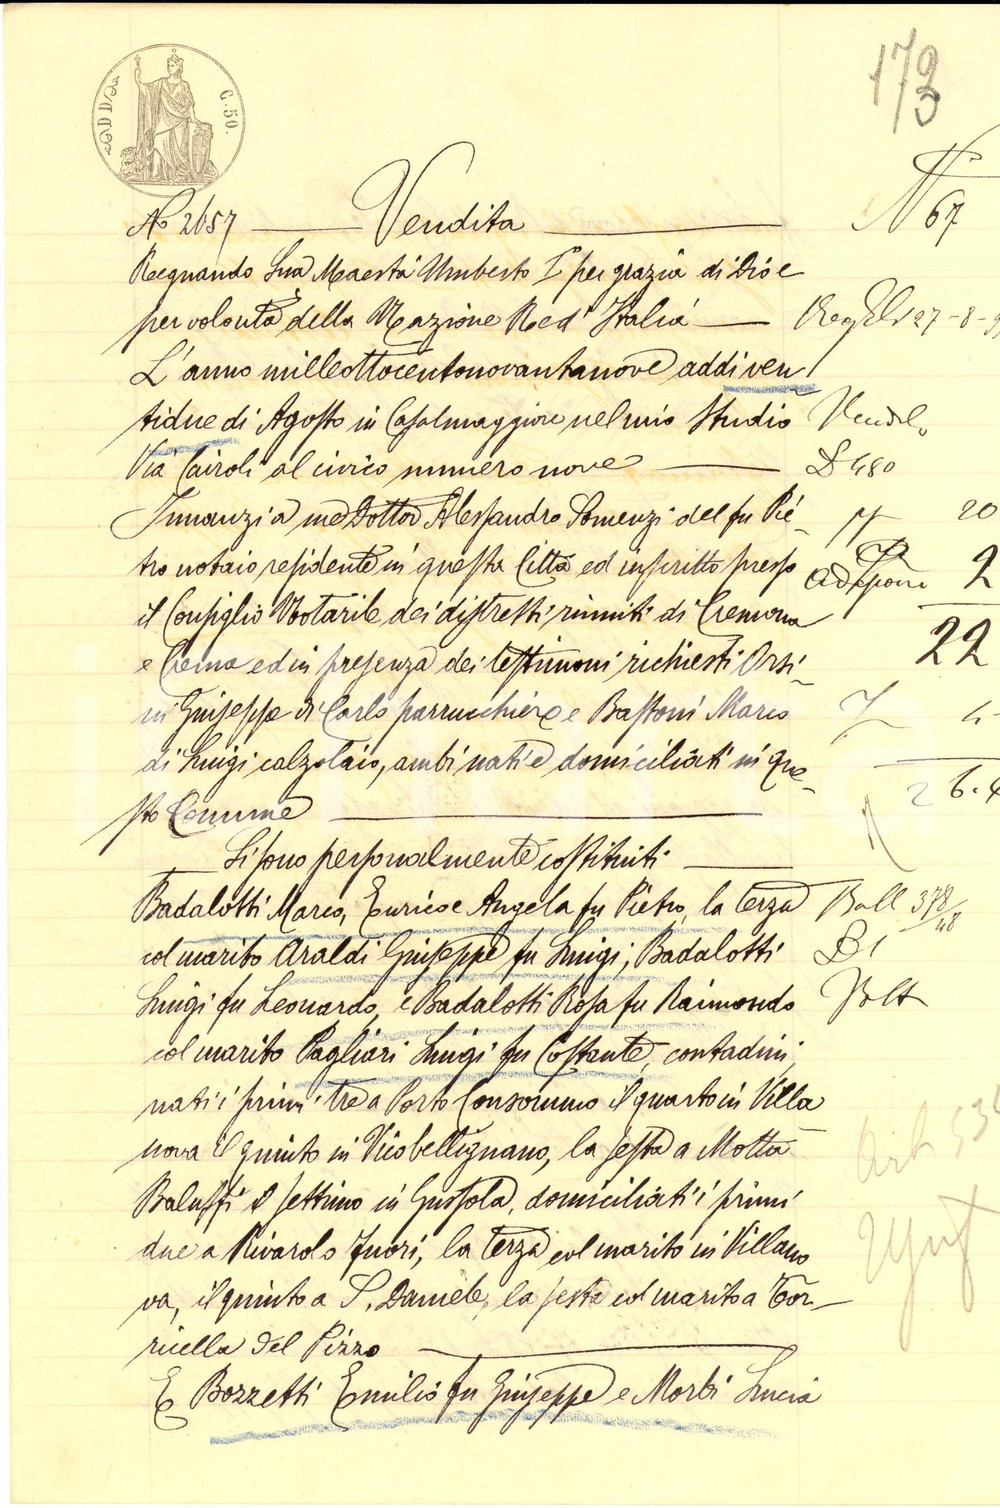 C. 50.
173
No 2657 Vendita
N 67
Regnando Sua Maestà Umberto I° per grazia di Dio e
per volontà della Nazione Re d'Italia
27-8-9
L'anno milleottocentonovantanove addi ven
tidue di Agosto in Casalmaggiore nel mio Studio
Via Cairoli al civico numero nove
£ 480
Innanzi a me Dottor Alessandro Somenzi del fu Pie-
20
tro notaio residente in questa Città ed inscritto presso
2
il Consiglio Notarile dei distretti riuniti di Cremona
22
e Crema ed in presenza dei testimoni richiesti Orsi-
ni Giuseppe di Carlo parrucchiere e Bastoni Marco
di Luigi calzolaio, ambi nati e domiciliati in que-
sto Comune
26.4
Si sono personalmente costituiti
Badalotti Marco, Enrico e Angela fu Pietro, la terza
Boll 378/48
col marito Araldi Giuseppe fu Luigi, Badalotti
Luigi fu Leonardo, e Badalotti Rosa fu Raimondo
col marito Pagliari Luigi fu Costante, contadini,
nati i primi tre a Ponte Consommo il quarto in Villa
nova il quinto in Vicobellignano, la sesta a Motta
Baluffi il settimo in Gussola, domiciliati i primi
due a Rivarolo Fuori, la terza col marito in Villano
va, il quinto a S. Daniele, la sesta col marito a Tor-
ricella del Pizzo
E Bozzetti Emilio fu Giuseppe e Morbi Lucia